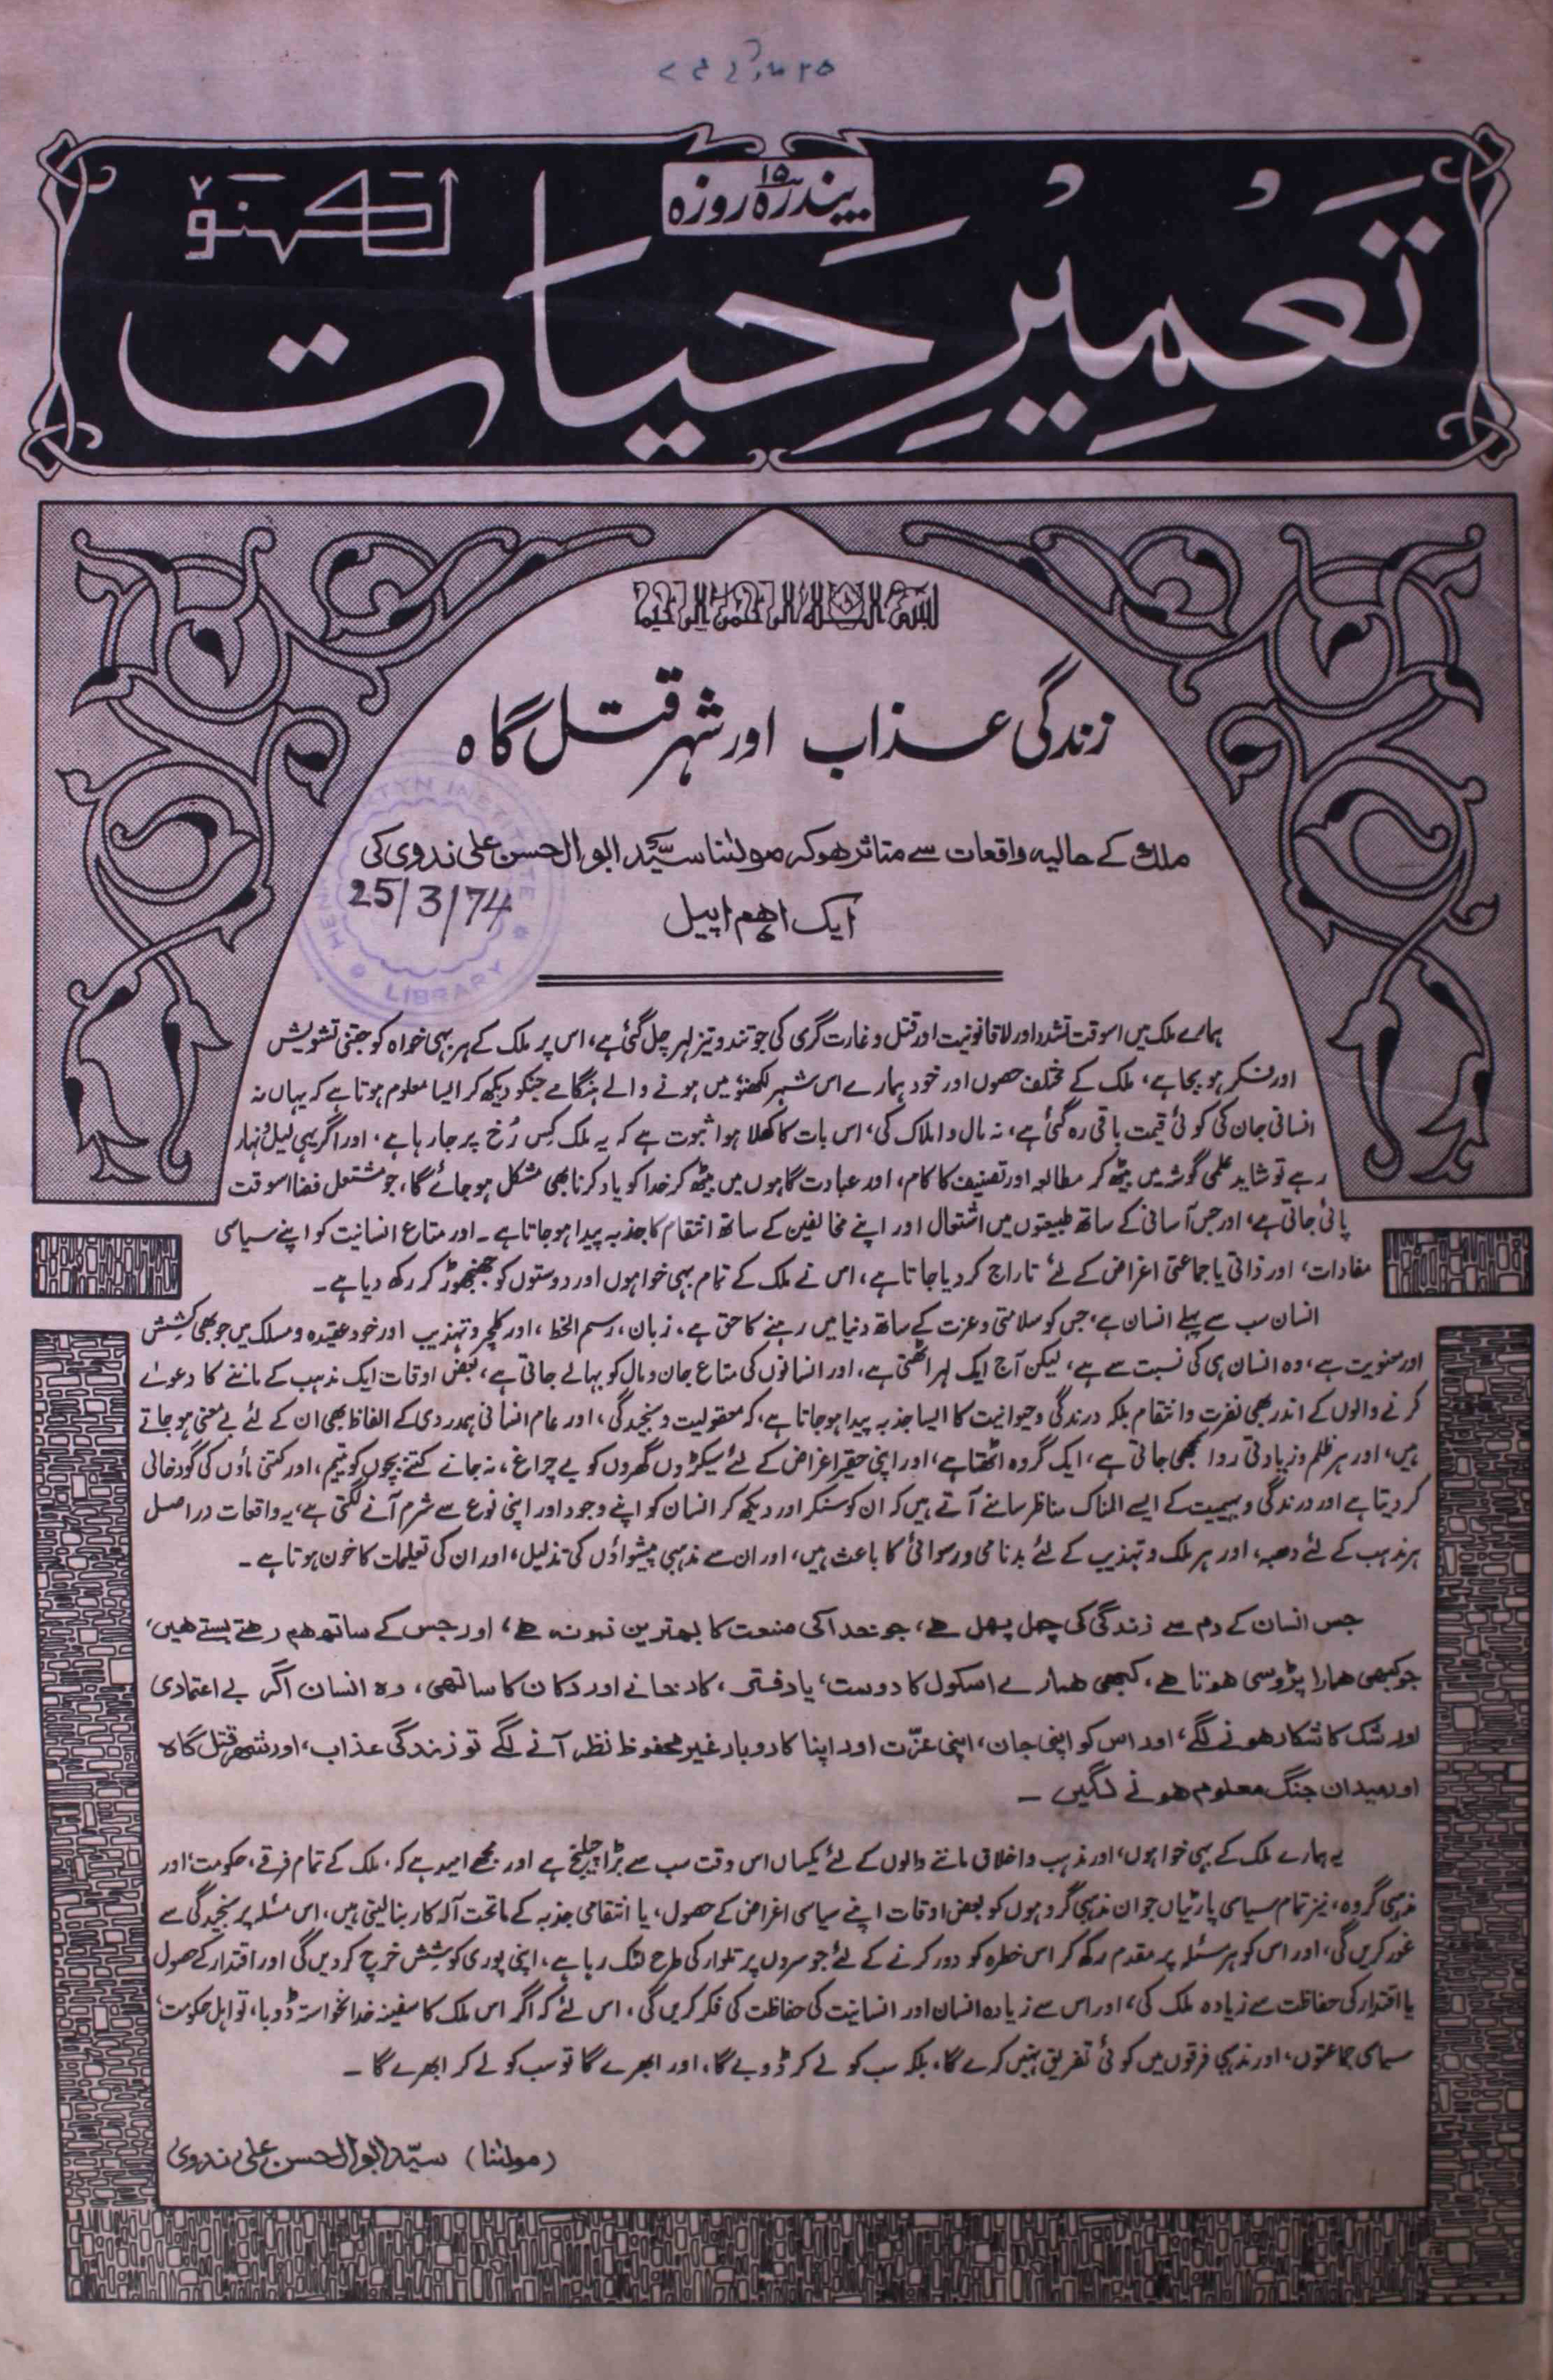 ۲۵ مارچ ۷۴ء
پندرہ ۱۵ روزہ
لکھنؤ
تَعْمِیْرِ حَیَات
بسم اللہ الرحمن الرحیم
زندگی عذاب اور شہر قتل گاہ
ملک کے حالیہ واقعات سے متاثر ہوکر مولٰنا سیّد ابوالحسن علی ندوی کی
25/3/74
ایک اہم اپیل
INSTITUTE
LIBRARY
ہمارے ملک میں اسوقت تشدد اور لاقانونیت اور قتل و غارت گری کی جو تند و تیز لہر چل گئی ہے، اس پر ملک کے ہر بہی خواہ کو جتنی تشویش
اور فکر ہو بجا ہے، ملک کے مختلف حصوں اور خود ہمارے اس شہر لکھنؤ میں ہونے والے ہنگامے جنکو دیکھ کر ایسا معلوم ہوتا ہے کہ یہاں نہ
انسانی جان کی کوئی قیمت باقی رہ گئی ہے، نہ مال و املاک کی، اس بات کا کھلا ہوا ثبوت ہے کہ یہ ملک کِس رُخ پر جارہا ہے، اور اگر یہی لیل و نہار
رہے تو شاید علمی گوشہ میں بیٹھ کر مطالعہ اور تصنیف کا کام، اور عبادت گاہوں میں بیٹھ کر خدا کو یاد کرنا بھی مشکل ہو جائے گا، جو مشتعل فضا اسوقت
پائی جاتی ہے، اور جس آسانی کے ساتھ طبیعتوں میں اشتعال اور اپنے مخالفین کے ساتھ انتقام کا جذبہ پیدا ہو جاتا ہے۔ اور متاع انسانیت کو اپنے سیاسی
مفادات، اور ذاتی یا جماعتی اغراض کے لئے تاراج کر دیا جاتا ہے، اس نے ملک کے تمام بہی خواہوں اور دوستوں کو جھنجھوڑ کر رکھ دیا ہے۔
انسان سب سے پہلے انسان ہے، جس کو سلامتی و عزت کے ساتھ دنیا میں رہنے کا حق ہے، زبان، رسم الخط، اور کلچر و تہذیب اور خود عقیدہ و مسلک میں جو بھی کشِش
اور معنویت ہے، وہ انسان ہی کی نسبت سے ہے، لیکن آج ایک لہر اٹھتی ہے، اور انسانوں کی متاع جان و مال کو بہالے جاتی ہے، بعض اوقات ایک مذہب کے ماننے کا دعوےٰ
کرنے والوں کے اندر بھی نفرت و انتقام بلکہ درندگی و حیوانیت کا ایسا جذبہ پیدا ہو جاتا ہے، کہ معقولیت و سنجیدگی، اور عام انسانی ہمدردی کے الفاظ بھی ان کے لئے بے معنی ہو جاتے
ہیں، اور ہر ظلم و زیادتی روا سمجھی جاتی ہے، ایک گروہ اٹھتا ہے، اور اپنی حقیر اغراض کے لئے سیکڑوں گھروں کو بے چراغ، نہ جانے کتنے بچوں کو یتیم، اور کتنی ماؤں کی گود خالی
کر دیتا ہے اور درندگی و بہیمیت کے ایسے المناک مناظر سامنے آتے ہیں کہ ان کو سنکر اور دیکھ کر انسان کو اپنے وجود اور اپنی نوع سے شرم آنے لگتی ہے، یہ واقعات دراصل
ہر مذہب کے لئے دھبہ، اور ہر ملک و تہذیب کے لئے بدنامی و رسوائی کا باعث ہیں، اور ان سے مذہبی پیشواؤں کی تذلیل، اور ان کی تعلیمات کا خون ہوتا ہے۔
جس انسان کے دم سے زندگی کی چہل پہل ہے، جو خدا کی صنعت کا بہترین نمونہ ہے، اور جس کے ساتھ ہم رہتے بستے ہیں،
جو کبھی ہمارا پڑوسی ہوتا ہے، کبھی ہمارے اسکول کا دوست، یا دفتر، کارخانے اور دکان کا ساتھی، وہ انسان اگر بے اعتمادی
اور شک کا شکار ہونے لگے، اور اس کو اپنی جان، اپنی عزّت اور اپنا کاروبار غیر محفوظ نظر آنے لگے تو زندگی عذاب، اور شہر قتل گاہ
اور میدان جنگ معلوم ہونے لگیں۔
یہ ہمارے ملک کے بہی خواہوں، اور مذہب و اخلاق ماننے والوں کے لئے یکساں اس وقت سب سے بڑا چیلنج ہے اور مجھے امید ہے کہ، ملک کے تمام فرقے، حکومت، اور
مذہبی گروہ، نیز تمام سیاسی پارٹیاں جو ان مذہبی گروہوں کو بعض اوقات اپنے سیاسی اغراض کے حصول، یا انتقامی جذبہ کے ماتحت آلہ کار بنا لیتی ہیں، اس مسئلہ پر سنجیدگی سے
غور کریں گی، اور اس کو ہر مسئلہ پر مقدم رکھ کر اس خطرہ کو دور کرنے کے لئے جو سروں پر تلوار کی طرح لٹک رہا ہے، اپنی پوری کوشِش خرچ کر دیں گی اور اقتدار کے حصول
یا اقتدار کی حفاظت سے زیادہ ملک کی، اور اس سے زیادہ انسان اور انسانیت کی حفاظت کی فکر کریں گی، اس لئے کہ اگر اس ملک کا سفینہ خدانخواستہ ڈوبا، تو اہل حکومت،
سیاسی جماعتوں، اور مذہبی فرقوں میں کوئی تفریق نہیں کرے گا، بلکہ سب کو لے کر ڈوبے گا، اور ابھرے گا تو سب کو لے کر ابھرے گا۔
(مولٰنا) سیّد ابوالحسن علی ندوی